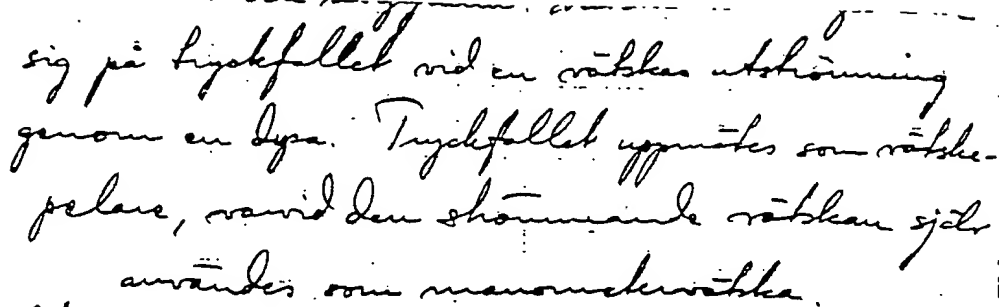 sig på tryckfallet vid en vätskas utströmning
genom en dysa. Tryckfallet uppmätes som vätske-
pelare, varvid den strömmande vätskan själv
användes som manometervätska.